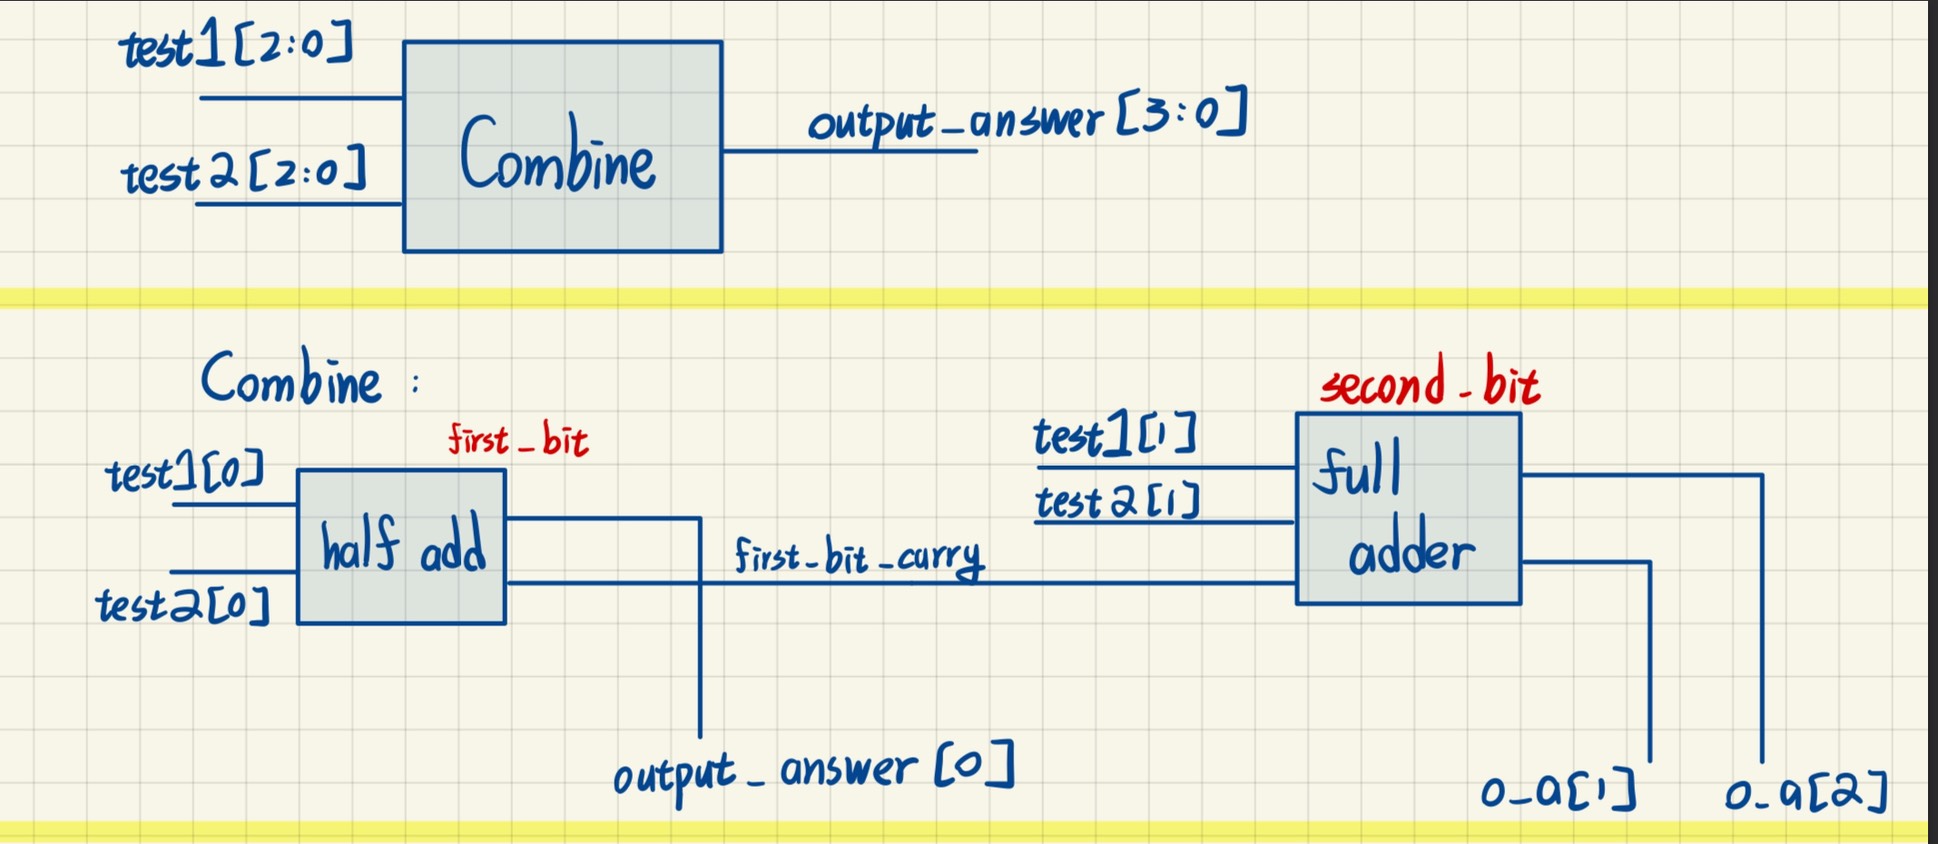 test1[2:0]
test2[2:0]
Combine
output_answer[3:0]
Combine :
first_bit
test1[0]
test2[0]
half add
first_bit_carry
output_answer[0]
second_bit
test1[1]
test2[1]
full
adder
o_a[1]
o_a[2]